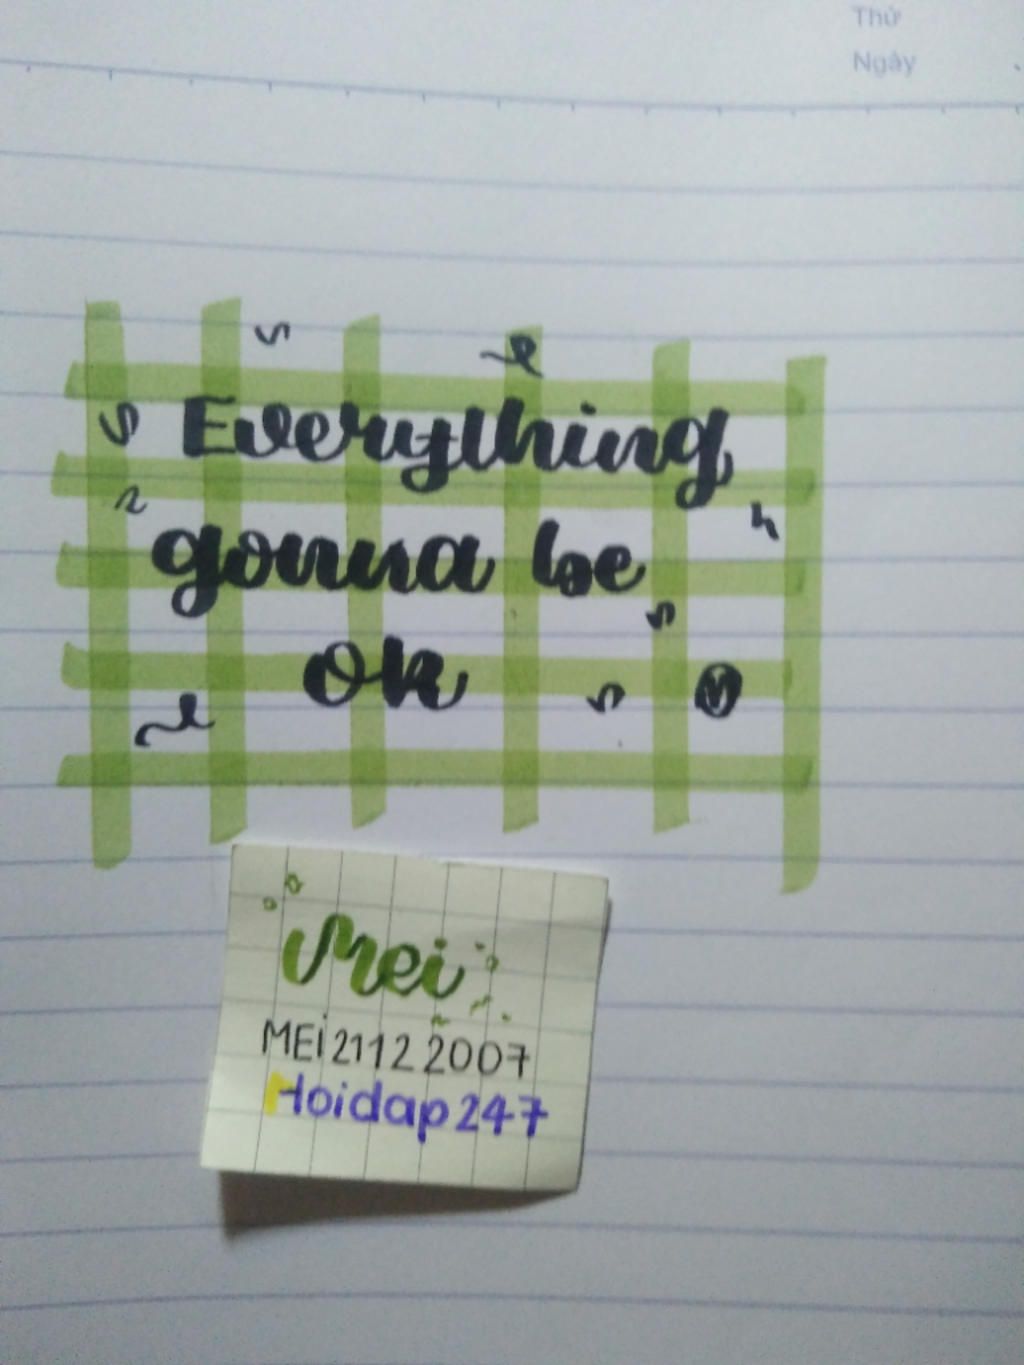 Thứ
Ngày
Everything
gonna be
ok
Mei
MEi21122007
Hoidap247